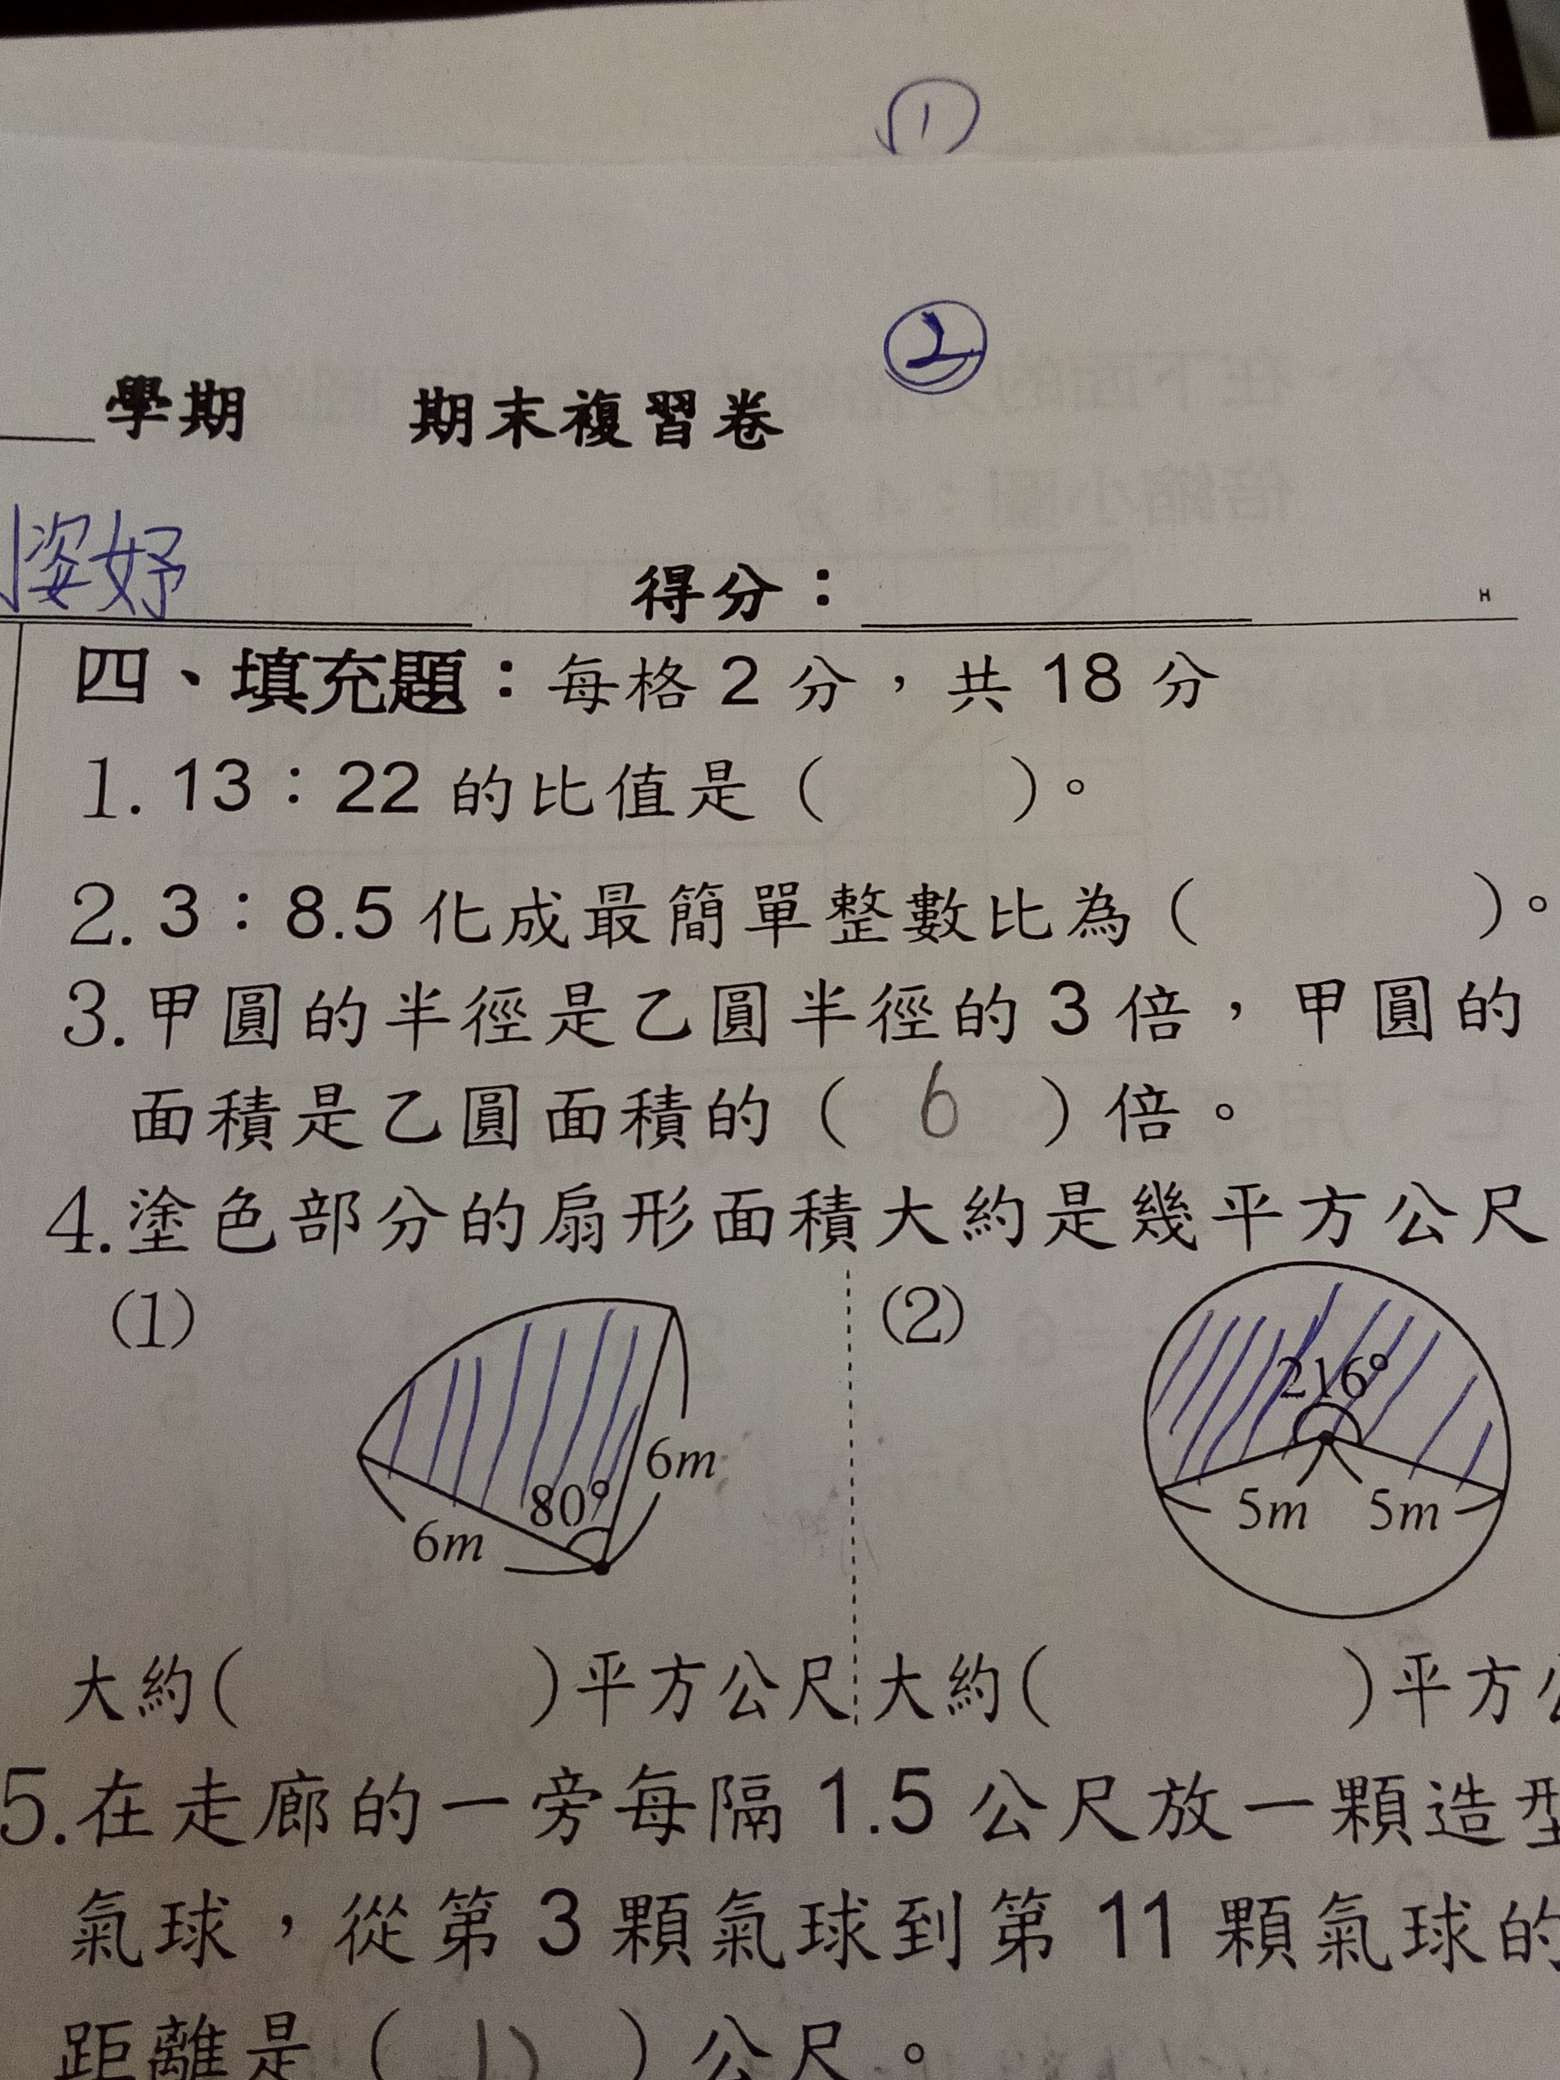 ①
②
學期 期末複習卷
姿妤
得分：
四、填充題：每格 2 分，共 18 分
1. 13：22 的比值是（ ）。
2. 3：8.5 化成最簡單整數比為（ ）。
3. 甲圓的半徑是乙圓半徑的 3 倍，甲圓的
面積是乙圓面積的（ 6 ）倍。
4. 塗色部分的扇形面積大約是幾平方公尺
(1) (2)
216°
80° 6m
6m 5m 5m
大約( )平方公尺 大約( )平方
5. 在走廊的一旁每隔 1.5 公尺放一顆造型
氣球，從第 3 顆氣球到第 11 顆氣球的
距離是（ ）公尺。